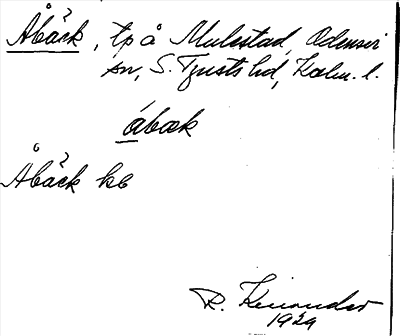 Åbäck, tp å Mulestad, Odensvi
sn, S. Tjusts hd, Kalm. l.
ábæk
Åbäck kb
R. Kinander
1929